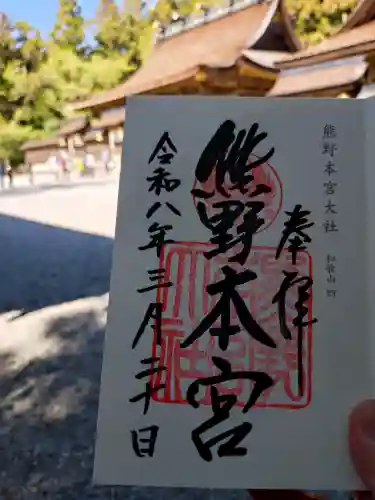 熊野本宮大社 和歌山 四
奉拝
熊野本宮
令和八年三月二十日